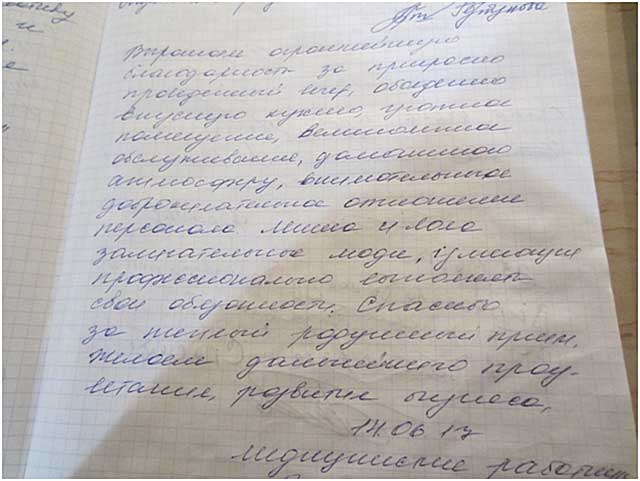 Выражаем огромнейшую
благодарность за прекрасно
проведенный вечер, обалденно
вкусную кухню, уютное
помещение, великолепное
обслуживание, домашнюю
атмосферу, внимательное
доброжелательное отношение
персонала и
замечательные люди, умеющие
профессионально выполнять
свои обязанности. Спасибо
за теплый радушный прием,
желаем дальнейшего проц-
ветания, развития бизнеса,
14.06.17
медицинские работник